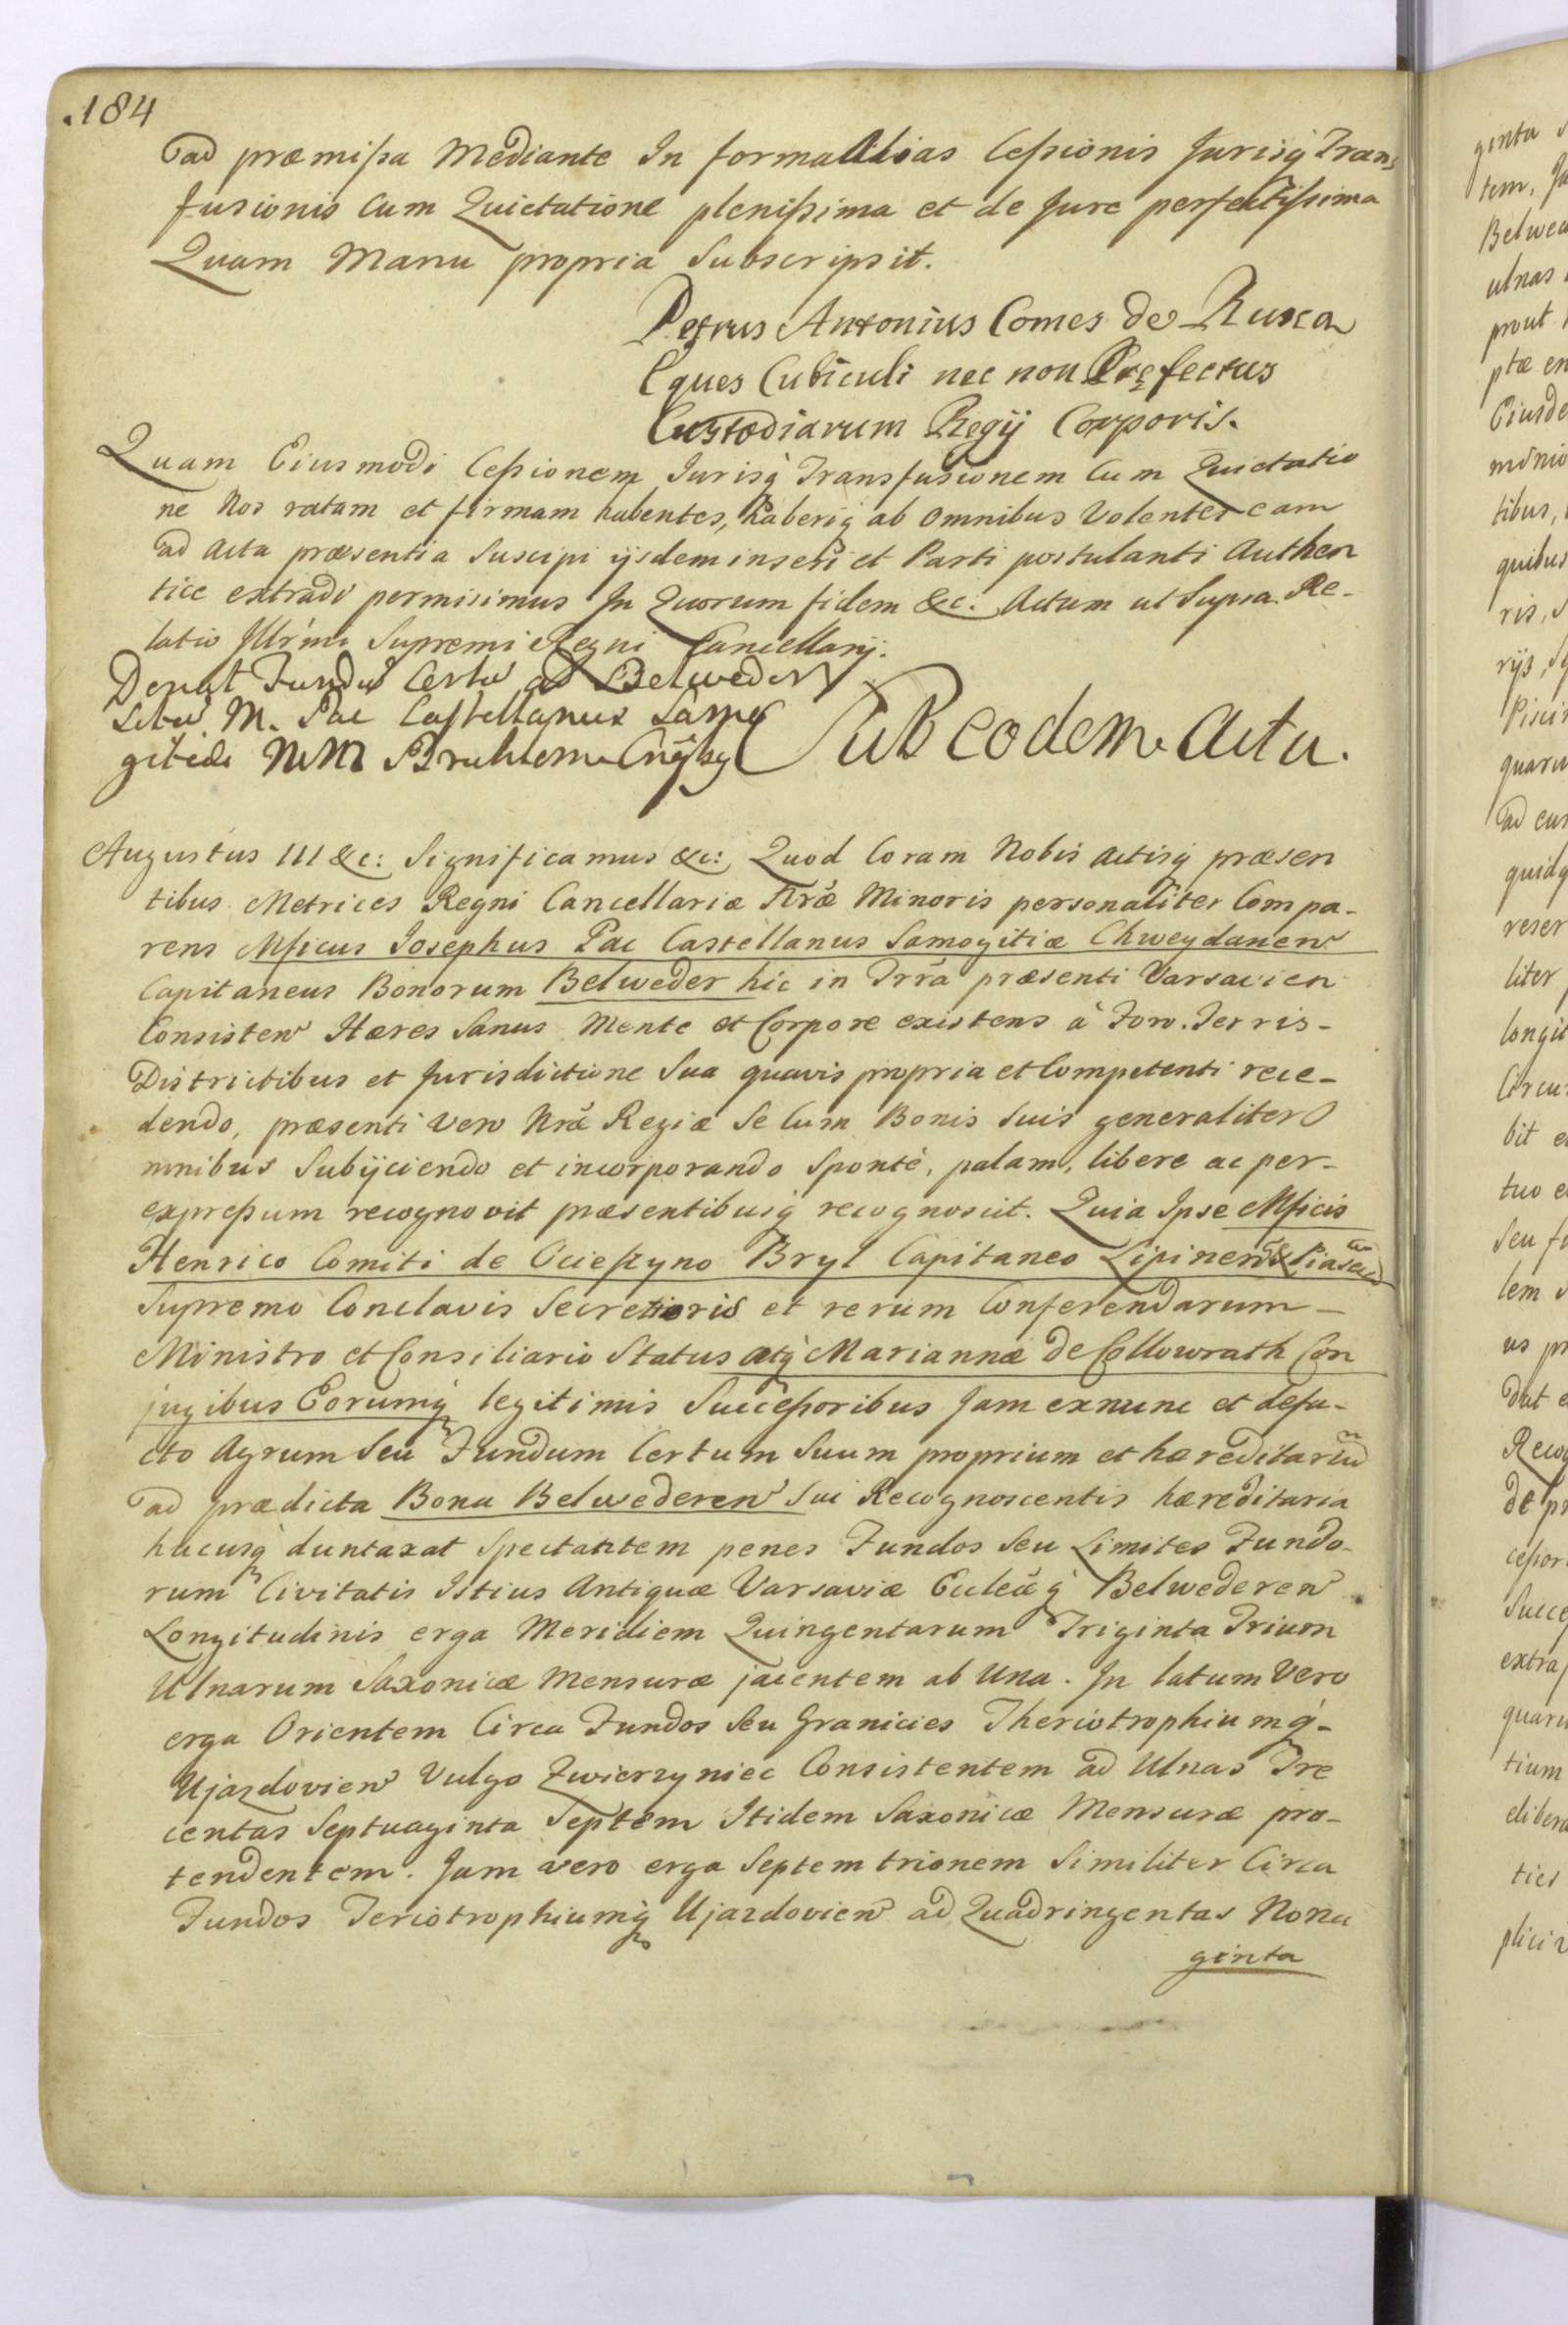 184
ad præmissa Mediante In forma Alias Cessionis Jurisq̀ Trans
fusionis Cum Quietatione plenissima et de Jure perfectissima
Quam Manu propria Subscripsit.
Petrus Antonius Comes de Rusca
Eques Cubiculi nec non Præfectus
Custodiarum Regij Corporis.
Quam Eiusmodi Cessionem Jurisq̀ Transfusionem Cum Quietatio
ne Nos ratam et firmam habentes, haberiq̀ ab Omnibus Volentes eam
ad Acta præsentia Suscipi ijsdem inseri et Parti postulanti Authen
tice extradi permisimus In Quorum fidem &c: Actum ut Supra. Re-
latio Illr̃mi Supremi Regni Cancellarij.
Fundũ Certũ ad Belweder
M. Pac Castellanus Samo
gitiæ MM Bruhlom
Sub eodem Actu.
Augustus III &c: Significamus &c: Quod Coram Nobis Actisq̀ præsen
tibus Metrices Regni Cancellariæ Nr̃æ Minoris personaliter Compa-
rens Mficus Josephus Pac Castellanus Samogitiæ Chweydanen
Capitaneus Bonorum Belweder hic in Trr̃a præsenti Varsavien
Consisten Hæres Sanus Mente et Corpore existens à Foro. Terris-
Districtibus et Jurisdictione Sua quavis propria et Competenti rece-
dendo, præsenti vero Nræ̃ Regiæ Se Cum Bonis Suis generaliter O
mnibus Subijciendo et incorporando Sponté, palam, libere ac per-
expressum recognovit præsentibusq̀ recognoscit. Quia Ipse Mficis
Henrico Comiti de Ocieszyno Bryl Capitaneo Lipinen & Piasecen
Supremo Conclavis Secretioris et rerum Conferendarum -
Ministro et Consiliario Status atq̀ Mariannæ de Collowrath Con
jugibus Eorumq̀ legitimis Successoribus Jam exnunc et defa-
cto Agrum Seu Fundum Certum Suum proprium et hæreditariũ
ad prædicta Bona Belwederen Sui Recognoscentis hæreditaria
hucusq̀ duntaxat Spectantem penes Fundos Seu Limites Fundo-
rum Civitatis Istius Antiquæ Varsaviæ Eccleãq̀ Belwederen
Longitudinis erga Meridiem Quingentarum Triginta Trium
Ulnarum Saxonicæ Mensuræ jacentem ab Una. In latum Vero
erga Orientem Circa Fundos Seu Granicies Theriotrophiumq̀-
Ujazdovien Vulgo Zwierzyniec Consistentem ad Ulnas Tre
centas Septuaginta Septem Itidem Saxonicæ Mensuræ pro-
tendentem. Jam vero erga Septemtrionem Similiter Circa
Fundos Teriotrophiumq̀ Ujazdovien ad Quadringentas Nona
ginta